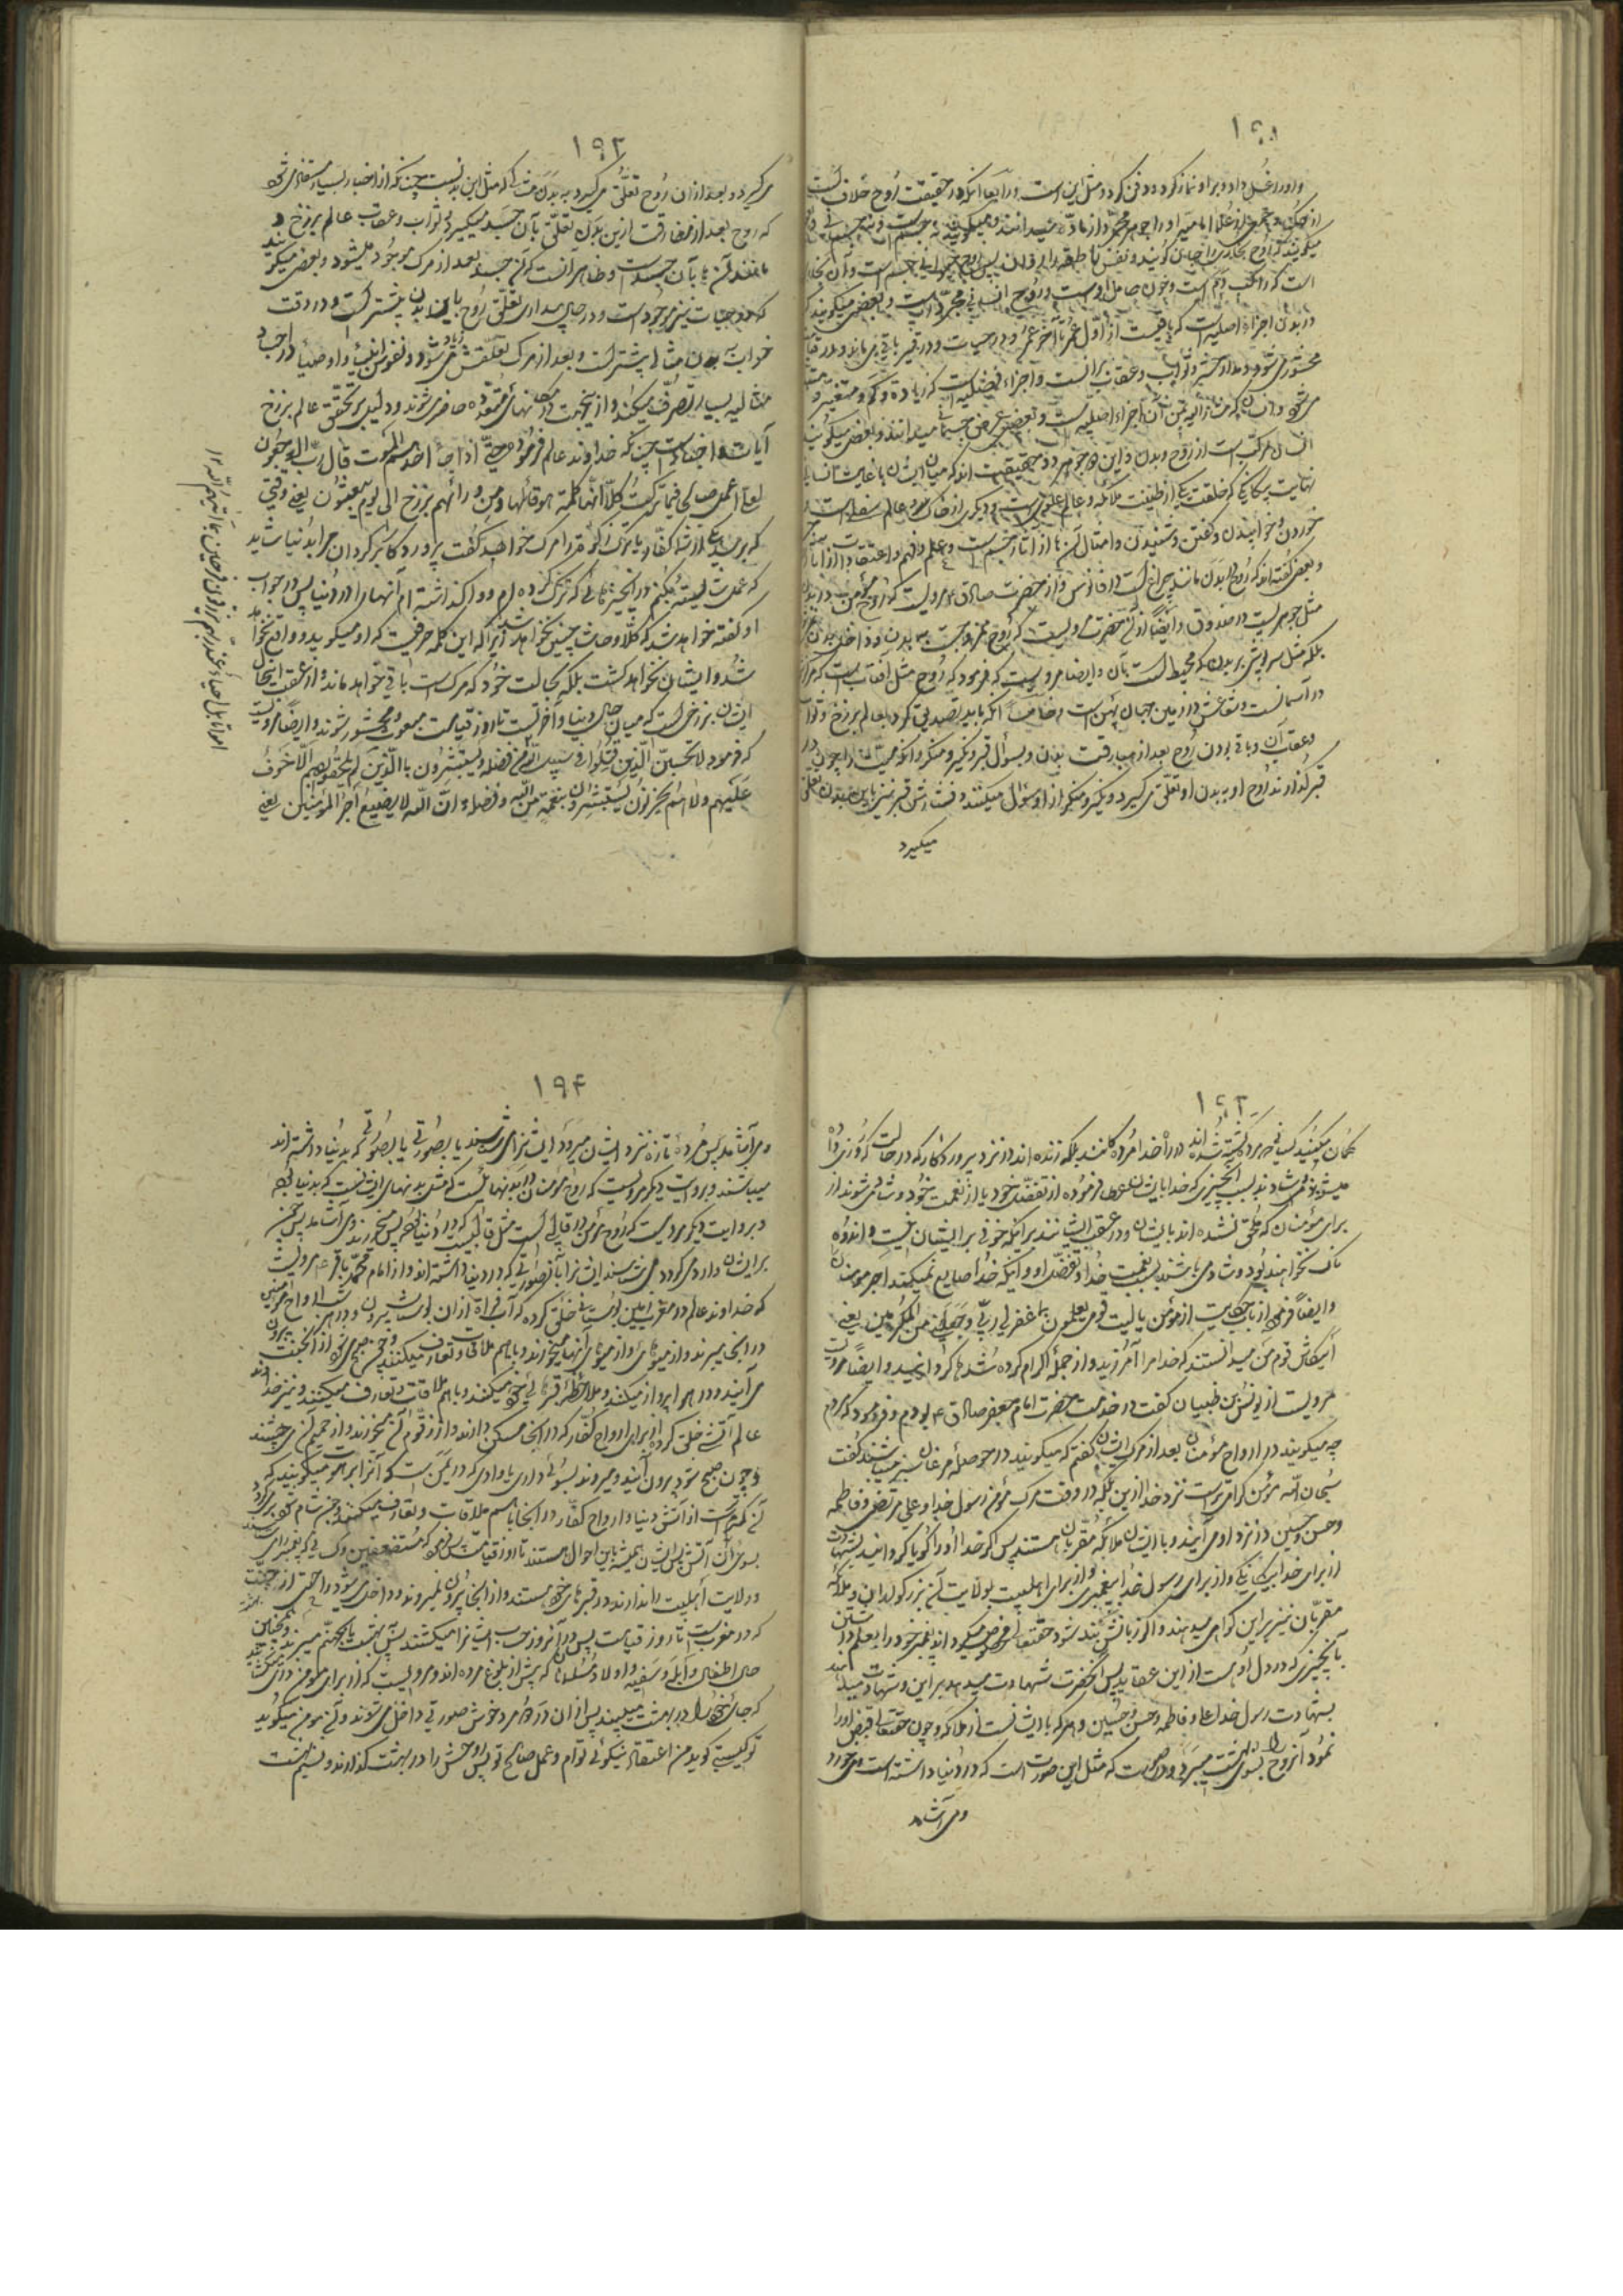 ۱۹۱
و او را غسل داد و بر او نماز کرد و دفن کرد و مثل این است و رابعا آنکه در حقیقت روح خلاف است
از حکما و جمعی از علما امامیه او را جوهر مجرد از ماده میدانند و میگویند نه جسم است و نه جسمانی
میگویند که روح بخاری را جان گویند و نفس ناطقه را روان پس روح حیوانی جسم است و آن بخار
است که مرکب دم است و خون حامل اوست و روح انسانی مجرد است و بعضی میگویند که
در بدن اجزاء اصلیه است که باقیست از اول عمر تا آخر عمر و در حیات و در قبر باقی می ماند و در قیامت
محشور می شود و مدار حشر و ثواب و عقاب بر آنست و اجزاء فضلیه است که زیاده و کم و متغیر و
می شود و انسان که من از آن این اجزاء اصلیه است و بعضی عرض جسمانی میدانند و بعضی میگویند
انسان مرکب است از روح و بدن و این دو جوهر در حقیقت اند که میان ایشان
نهایت بیگانگی که خلقت یکی از طینت ملائکه و عالم علوی است و دیگری از خاک و عالم سفلی است
خوردن و خوابیدن و گفتن و شنیدن و امثال آنها از آثار جسم است و علم و فهم و اعتقاد از آثار
و بعضی گفته اند که روح در بدن مانند چراغ است در فانوس و از حضرت صادق ع مرویست که روح مؤمن در بدن
مثل جوهریست در صندوق و ایضا از آن حضرت مرویست که روح ممزوج نیست به بدن و داخل بدن
بلکه مثل سرپوش بر بدن که محیط است بآن و ایضا مرویست که فرمود که روح مثل آفتابست که مرکز
در آسمانست و شعاعش در زمین جهان پهن است و خامسا آنکه باید تصدیق کرد بعالم برزخ و ثواب
و عقاب آن و باقی بودن روح بعد از مفارقت بدن و بسؤال قبر و نکیر و منکر و آنکه میت را چون در
قبر گذارند روح او به بدن او تعلق می گیرد و نکیر و منکر از او سؤال میکنند و فشارش قبر نیز باین بدن تعلق
میگیرد
۱۹۲
می گیرد و بعد از آن روح تعلق میگیرد به بدن مثالی که مثل این بدنست چنانکه از اخبار بسیار مستفاد می شود
که روح بعد از مفارقت ازین بدن تعلق بآن جسد میگیرد و ثواب و عقاب عالم برزخ و
مانند آنها بآن جسد است و ظاهر آنست که آن جسد بعد از مرگ موجود میشود و بعضی میگویند
که در حیات نیز موجود است و در حال بیداری تعلق روح باین بدن بیشتر است و در وقت
خواب به بدن مثالی بیشتر است و بعد از مرگ تعلقش زیاد می شود و نفوس انبیاء و اوصیاء در اجساد
مثالیه بسیار تصرف میکند و ازینجهت در مکانهای متعدده حاضر می شوند و دلیل بر تحقق عالم برزخ
آیات و اخبار است چنانکه خداوند عالم فرموده حتی اذا جاء احدهم الموت قال رب ارجعون
لعلی اعمل صالحا فیما ترکت کلا انها کلمة هو قائلها و من ورائهم برزخ الی یوم یبعثون یعنی وقتی
که برسد یکی از شما کفار یا ترک کنندۀ مرگ خواهد گفت پروردگارا برگردان مرا بدنیا شاید
که عمل شایسته بکنم در آنچیزهائی که ترک کرده ام و واگذاشته ام آنها را در دنیا پس در جواب
او گفته خواهد شد که کلا و حاشا چنین نخواهد شد زیرا که این کلمه حرفیست که او میگوید و واقع نخواهد
شد و ایشان نخواهد گشت بلکه بحالت خود که مرگ است باقی خواهد مانده و از عقب
ایشان برزخی است که میان حال دنیا و آخرتست تا روز قیامت مبعوث و محشور شوند و ایضا مرویست
که فرمود لا تحسبن الذین قتلوا فی سبیل الله من فضله و یستبشرون بالذین لم یلحقوا بهم الا خوف
علیهم و لا هم یحزنون یستبشرون بنعمة من الله و فضل و ان الله لا یضیع اجر المؤمنین یعنی
امواتا بل احیاء عند ربهم یرزقون فرحین بما آتیهم الله ۱۲
۱۹۳
گمان میکنید کسانیکه کشته شده اند در راه خدا مرده گانند بلکه زنده اند در نزد پروردگار که در حالت که روزی داده
میشوند و شادند بسبب آنچیزی که خدا بایشان عطا فرموده از تفضل خود یا از نعمت خود و شاد می شوند از
برای مؤمنان که ملحق نشده اند بایشان و در عقب ایشانند برای آنکه خوفی بر ایشان نیست و اندوه
ناک نخواهند بود و شادی می باشند بسبب نعمت خدا و تفضل او و آنکه خدا ضایع نمیکند اجر مومنان
و ایضا فرمود از باب حکایت از مؤمن یا لیت قومی یعلمون بما غفر لی ربی و جعلنی من المکرمین یعنی
ایکاش قوم من میدانستند که خدا مرا آمرزید و از جمله اکرام کرده شده ها گردانید و ایضا مرویست
مرویست از یونس بن ظبیان گفت در خدمت حضرت امام جعفر صادق ع بودم و فرمود که مردم
چه میگویند در ارواح مؤمنان بعد از مرگ ایشان گفتم که میگویند در حوصلۀ مرغان سبز میباشند گفت
سبحان الله مؤمن گرامی تر است نزد خدا ازین بلکه در وقت مرگ مؤمن رسول خدا و علی مرتضی و فاطمه
و حسن و حسین در نزد او می آیند و با ایشان ملائکه مقربان هستند پس اگر خدا او را گویا گردانید بشهادت
از برای خدا بیگانگی و از برای رسول خدا بپیغمبری و از برای اهلبیت بولایت آن بزرگواران و ملائکه
مقربان نیز بر این گواهی میدهند و اگر زبانش بند شود حقتعالی مخصوص میگرداند پیغمبر خود را بعلم در آن
بآنچیزی که در دل او هست از این عقاید پس آنحضرت شهادت میدهد بر این و شهادت میدهند
بشهادت رسول خدا علی و فاطمه و حسن و حسین و هر که با ایشانست از ملائکه و چون حقتعالی قبض او را
نمود آنروح را بسوی بهشت میبرد و در صورتیست که مثل این صورت است که در دنیا داشته است می خورد
و می آشامد
۱۹۴
و می آشامد پس مرده تازه نزد ایشان میرود ایشان را می شناسند یا بصورتی یا بصورتی که بدنیا داشته اند
میباشند و بروایت دیگر مرویست که روح مؤمنان در بدنهائیست که مثل بدنهای ایشانست که بدنیا بوده
و بروایت دیگر مرویست که روح مؤمن در قالبی است مثل قالبیست که در دنیا داشته پس میخورند و می آشامند پس چون
بر ایشان وارد می گردد می شناسند ایشان را بآن صورتی که در دنیا داشته اند و از امام محمد باقر ع مرویست
که خداوند عالم در مغرب زمین بوستانی خلق کرده که آب فرات از آن بوستان بیرون و در هر شب ارواح مؤمنین
در آنجا میروند و از میوهای او از میوهای آنها میخورند و با هم ملاقات و تعارف میکنند و چون صبح می شود از آن جنت بیرون
می آیند و در هوا پرواز میکنند و ملاحظۀ قبرهای خود میکنند و با هم ملاقات و تعارف میکنند و نیز خداوند
عالم آتشی خلق کرده از برای ارواح کفار که در آنجا مسکن دارند و از زقوم آن میخورند و از حمیم آن می چشند
و چون صبح شود بیرون آیند و میروند بسوی وادی یا وادی که در یمن است که آنرا برهوت میگویند که
آن گرمتر است از آتش دنیا و ارواح کفار در آنجا با هم ملاقات و تعارف میکنند و چون شام شود برگردند
بسوی آن آتش پس ایشان همیشه باین احوال هستند تا روز قیامت پس فرمود که مستضعفین و کسانی که
و ولایت اهلبیت را ندارند در قبرهای خود هستند و از آنجا بیرون نمیروند و داخل می شود راحتی از جنت
که در مغربست تا روز قیامت پس در آنروز حساب ایشان را میکشند پس به بهشت یا بجهنم میبرند و همچنین
حال اطفال و ابله و سفیه و اولاد مسلمانان که پیش از بلوغ مرده اند و مرویست که از برای مؤمن دری میگشایند
که جای خود را در بهشت میبیند پس از آن در مرد خوش صورتی داخل می شوند و آن مؤمن میگوید
تو کیستی گوید من اعتقاد نیکوئی توام و عمل صالح تو پس روحش را در بهشت گذارند و نسیم بهشت